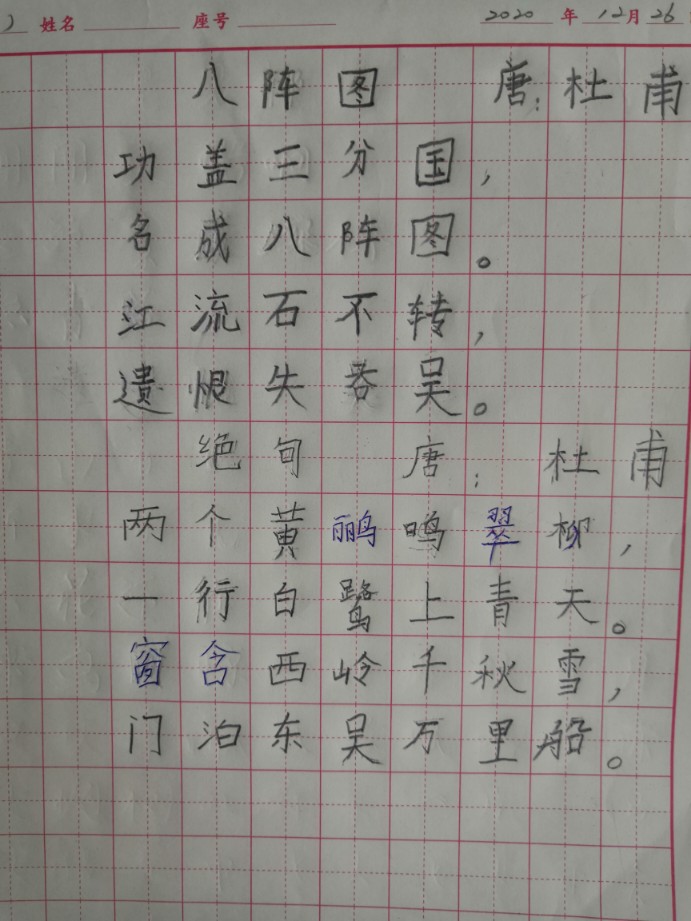 ) 姓名 座号 2020 年 12月 26
八阵图 唐:杜甫
功盖三分国,
名成八阵图。
江流石不转,
遗恨失吞吴。
绝句 唐:杜甫
两个黄鹂鸣翠柳,
一行白鹭上青天。
窗含西岭千秋雪,
门泊东吴万里船。